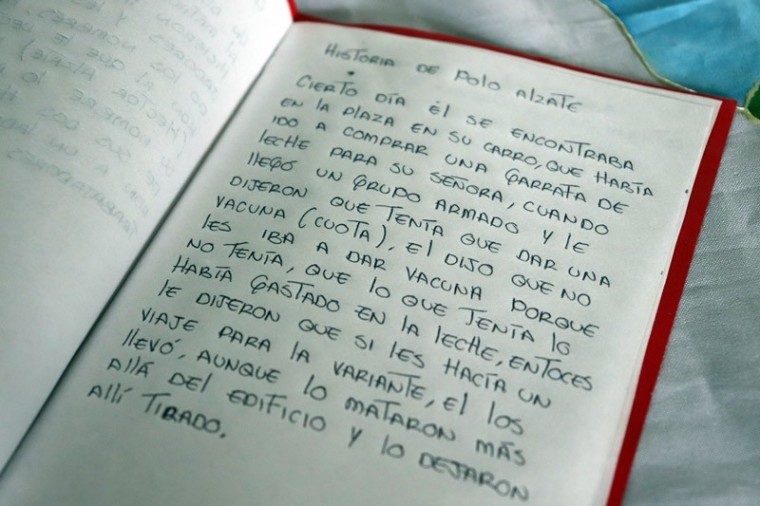 HISTORIA DE POLO AlZATE
CIERTO DÍA ÉL SE ENCONTRABA
EN LA PLAZA EN SU CARRO, QUE HABÍA
IDO A COMPRAR UNA GARRAFA DE
LECHE PARA SU SEÑORA, CUANDO
llEGÓ UN GRUDO ARMADO Y LE
DIJERON QUE TENÍA QUE DAR UNA
VACUNA (CUOTA), El DIJO QUE NO
lES IBA A DAR VACUNA PORQUE
NO TENÍA, QUE lO QUE TENÍA lO
HABÍA GASTADO EN lA lECHE, ENTOCES
lE DIJERON QUE SI lES HACÍA UN
VIAJE PARA lA VARIANTE, El lOS
llEVÓ, AUNQUE lO MATARON MÁS
AllÁ DEL EDIFICIO Y lO DEJARON
AllÍ TIRADO.